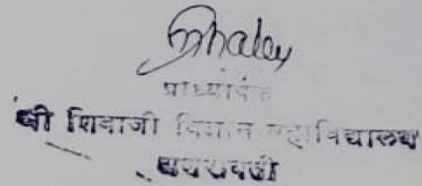 प्राध्यापक
श्री शिवाजी विज्ञान महाविद्यालय
अमरावती